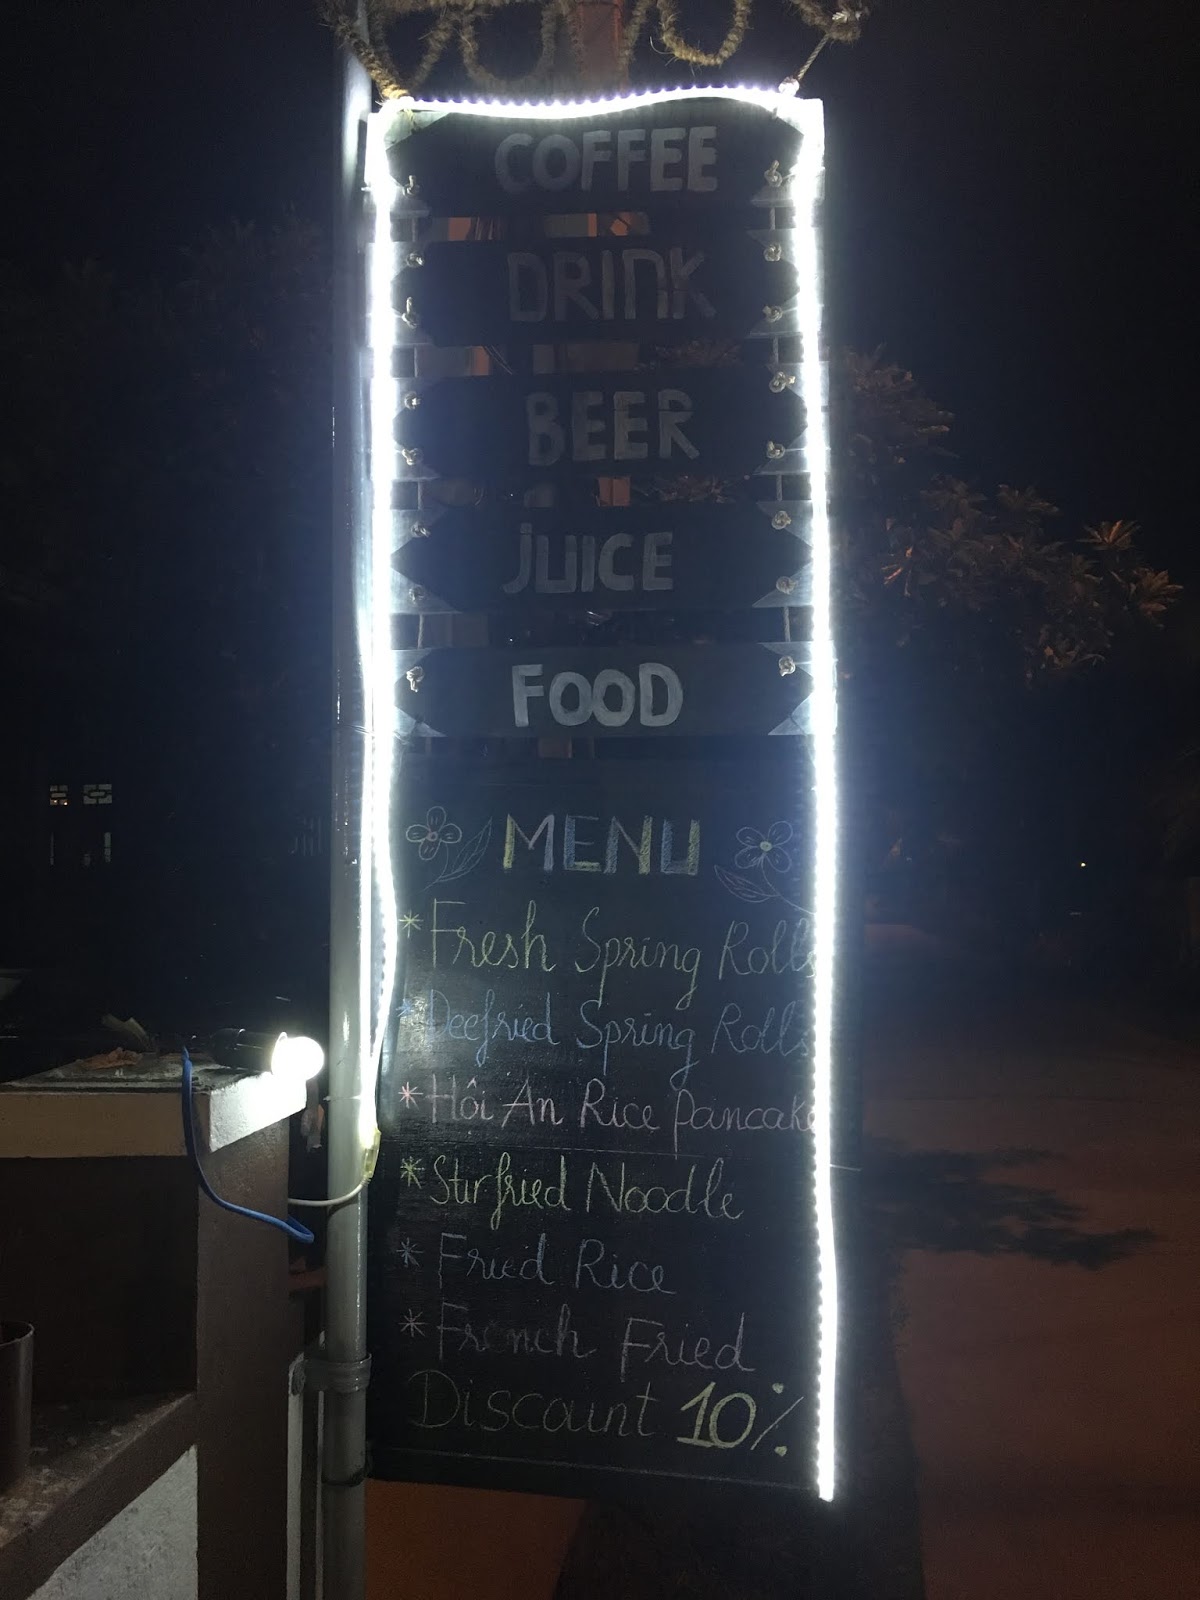 COFFEE
DRINK
BEER
JUICE
FOOD
MENU
* Fresh Spring Rolls
* Deefried Spring Rolls
* Hôi An Rice pancake
* Stirfried Noodle
* Fried Rice
* French Fried
Discount 10%